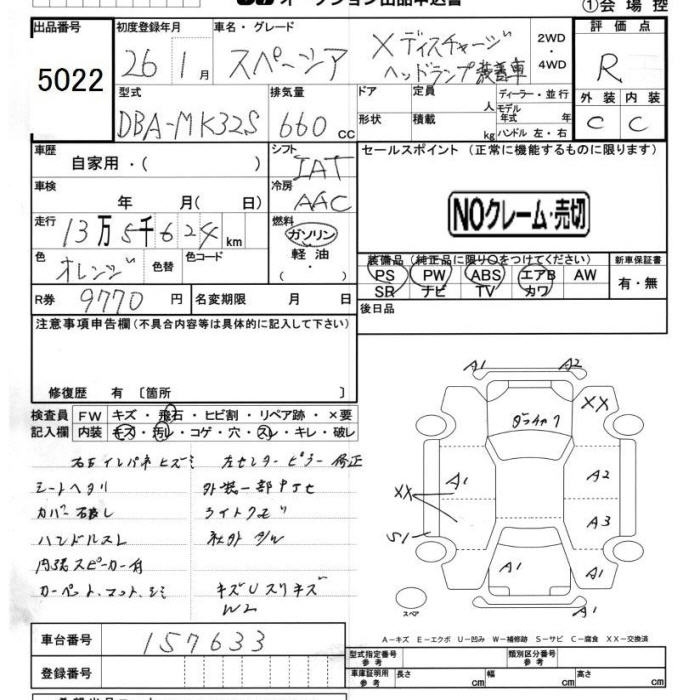 オークション出品申込書
①会場控
出品番号
5022
初度登録年月
26 1月
車名・グレード
スペーシア
Xディスチャージ
ヘッドランプ装着車
2WD
・
4WD
評価点
R
外装 内装
C C
型式
DBA-MK32S
排気量
660 cc
ドア
形状
定員 人
積載 kg
ディーラー・並行
モデル年式 年
ハンドル 左・右
車歴
自家用・( )
シフト
IAT
セールスポイント (正常に機能するものに限ります)
車検
年 月( 日)
冷房
AAC
NOクレーム・売切
走行
13万5千624km
燃料
ガソリン
軽油
( ・ )
色
オレンジ
色替
色コード
装備品 (純正品に限り○をつけてください)
PS PW ABS エアB AW
SR ナビ TV カワ
新車保証書
有・無
R券
9770円
名変期限 月 日
後日品
注意事項申告欄(不具合内容等は具体的に記入して下さい)
修復歴 有 〔箇所 〕
検査員
記入欄
FW キズ・飛石・ヒビ割・リペア跡・×要
内装 キズ・汚レ・コゲ・穴・スレ・キレ・破レ
右インパネヒズミ 左センターピラー修正
シートヘタリ
カバー
ハンドルスレ
内張スピーカー有
カーペット、マット、シミ
外装一部
ライトクモリ
社外
キズUスリキズ
W2
A1 A2
XX
ダライチャク
A1
XX
A2
A3
S1
A1
A1
A1
スペア
A−キズ E−エクボ U−凹み W−補修跡 S−サビ C−腐食 XX−交換済
車台番号
157633
登録番号
型式指定番号
参考
類別区分番号
参考
車庫証明用
参考
長さ cm
幅 cm
高さ cm